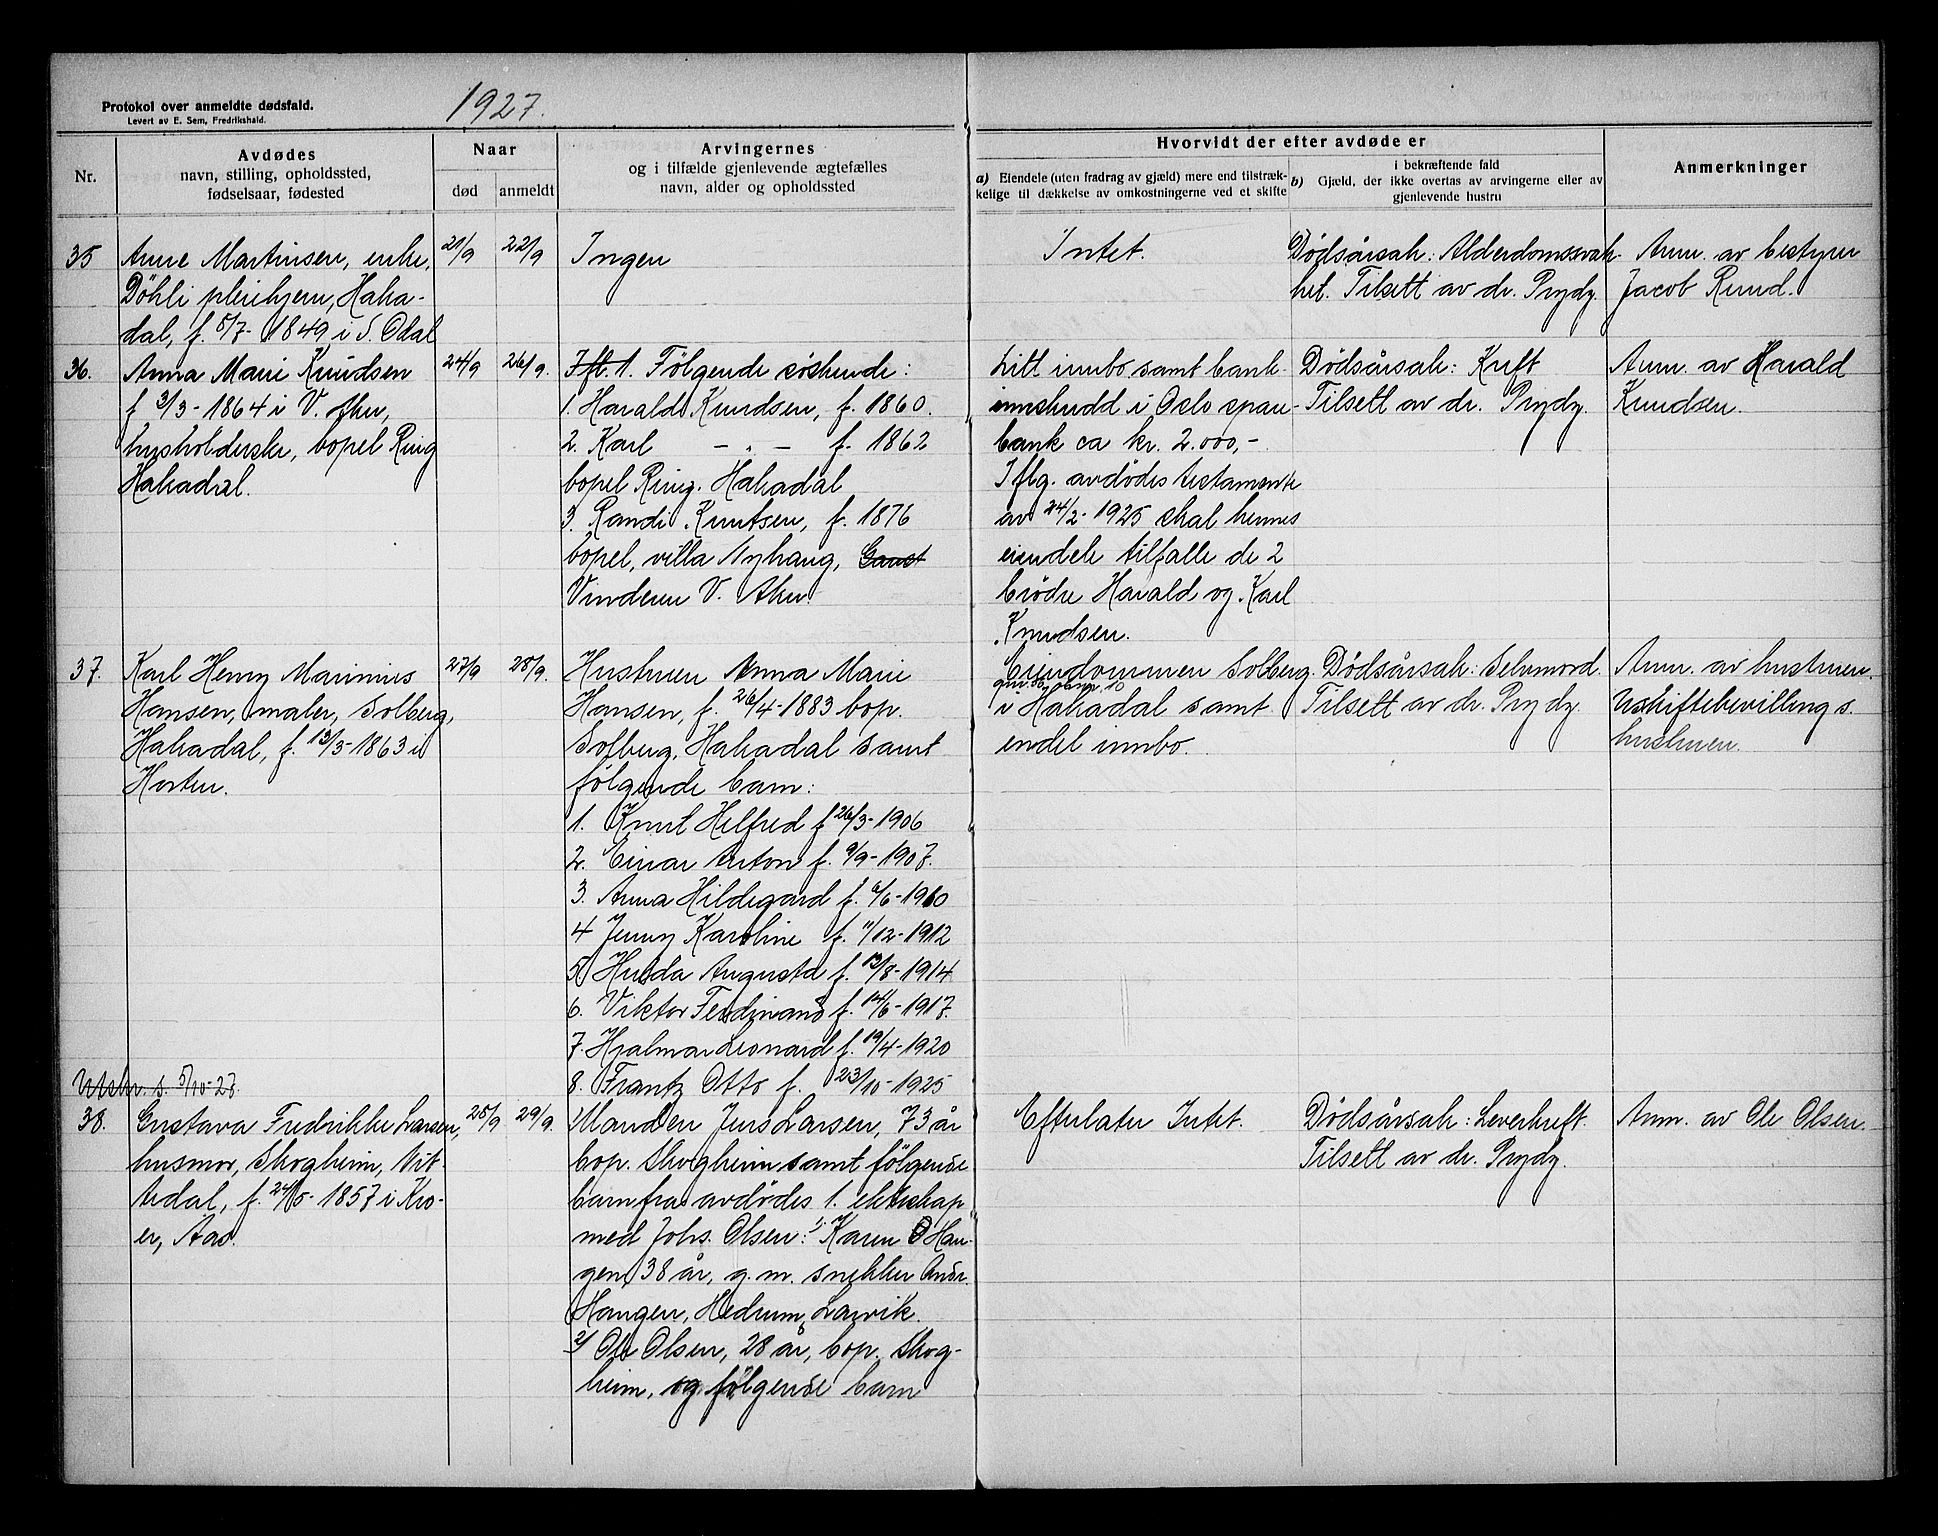 Protokol over anmeldte dødsfald.
Levert av E. Sem, Fredrikshald.
1927.
Nr.
Avdødes
navn, stilling, opholdssted,
fødselsaar, fødested
Naar
død
anmeldt
Arvingernes
og i tilfælde gjenlevende ægtefælles
navn, alder og opholdssted
Hvorvidt der efter avdøde er
a) Eiendele (uten fradrag av gjæld) mere end tilstræk-
kelige til dækkelse av omkostningerne ved et skifte
i bekræftende fald
b) Gjæld, der ikke overtas av arvingerne eller av
gjenlevende hustru
Anmerkninger
35
Anne Martinsen, enke,
Döhli pleiehjem, Haka-
dal, f. 5/7-1849 i S. Odal
21/9
22/9
Ingen
Intet.
Dødsårsak: Alderdomssvak-
het. Tilsett av dr. Prydz.
Anm. av bestyrer
Jacob Ruud.
36.
Anna Marie Knudsen
f 3/3-1864 i V. Aker,
husholderske, bopel Ring
Hakadal.
24/9
26/9.
Ift. 1. Følgende søskende:
1. Harald Knudsen, f. 1860.
2. Karl — " — f. 1862
bopel Ring. Hakadal
3. Randi Knutsen, f. 1876
bopel, villa Nyhaug,
Vinderen V. Aker.
Litt innbo samt bank-
innskudd i Oslo spare-
bank ca kr. 2.000,-
Iflg. avdødes testamente
av 24/2-1925 skal hennes
eiendele tilfalle de 2
brødre Harald og Karl
Knudsen.
Dødsårsak: Kreft
Tilsett av dr. Prydz.
Anm. av Harald
Knudsen.
37.
Karl Henry Marinius
Hansen, maler, Solberg,
Hakadal, f. 13/3-1863 i
Horten.
27/9
28/9.
Hustruen Anna Marie
Hansen, f. 26/4-1883 bop.
Solberg, Hakadal samt
følgende barn:
1. Knut Helfred f 26/3-1906
2. Einar Anton f. 9/9-1907.
3. Anna Hildegard f. 6/6-1910
4 Jenny Karoline f. 11/12-1912
5 Hulda Augusta f. 13/8-1914
6. Viktor Ferdinand f. 14/6-1917.
7. Hjalmar Leonard f. 19/4-1920
8. Frantz Otto f. 23/10-1925
Eiendommen Solberg.
i Hakadal samt
endel innbo.
Dødsårsak: Selvmord.
Tilsett av dr. Prydz.
Anm. av hustruen.
Uskiftebevilling s.
hustruen.
Utskr. s. 5/10-27.
38.
Gustava Fredrikke Larsen,
husmor, Skogheim, Nit-
tedal, f. 24/5-1857 i Kro-
er, Aas.
25/9
29/9.
Manden Jens Larsen, 73 år
bop. Skogheim samt følgende
barn fra avdødes 1. ekteskap
med Johs. Olsen: 1. Karen Hau-
gen, 38 år, g. m. snekker Andr.
Haugen, Hedrum, Larvik.
2) Ole Olsen, 28 år, bop. Skog-
heim, og følgende barn
Efterlater Intet.
Dødsårsak: Leverkreft.
Tilsett av dr. Prydz.
Anm. av Ole Olsen.